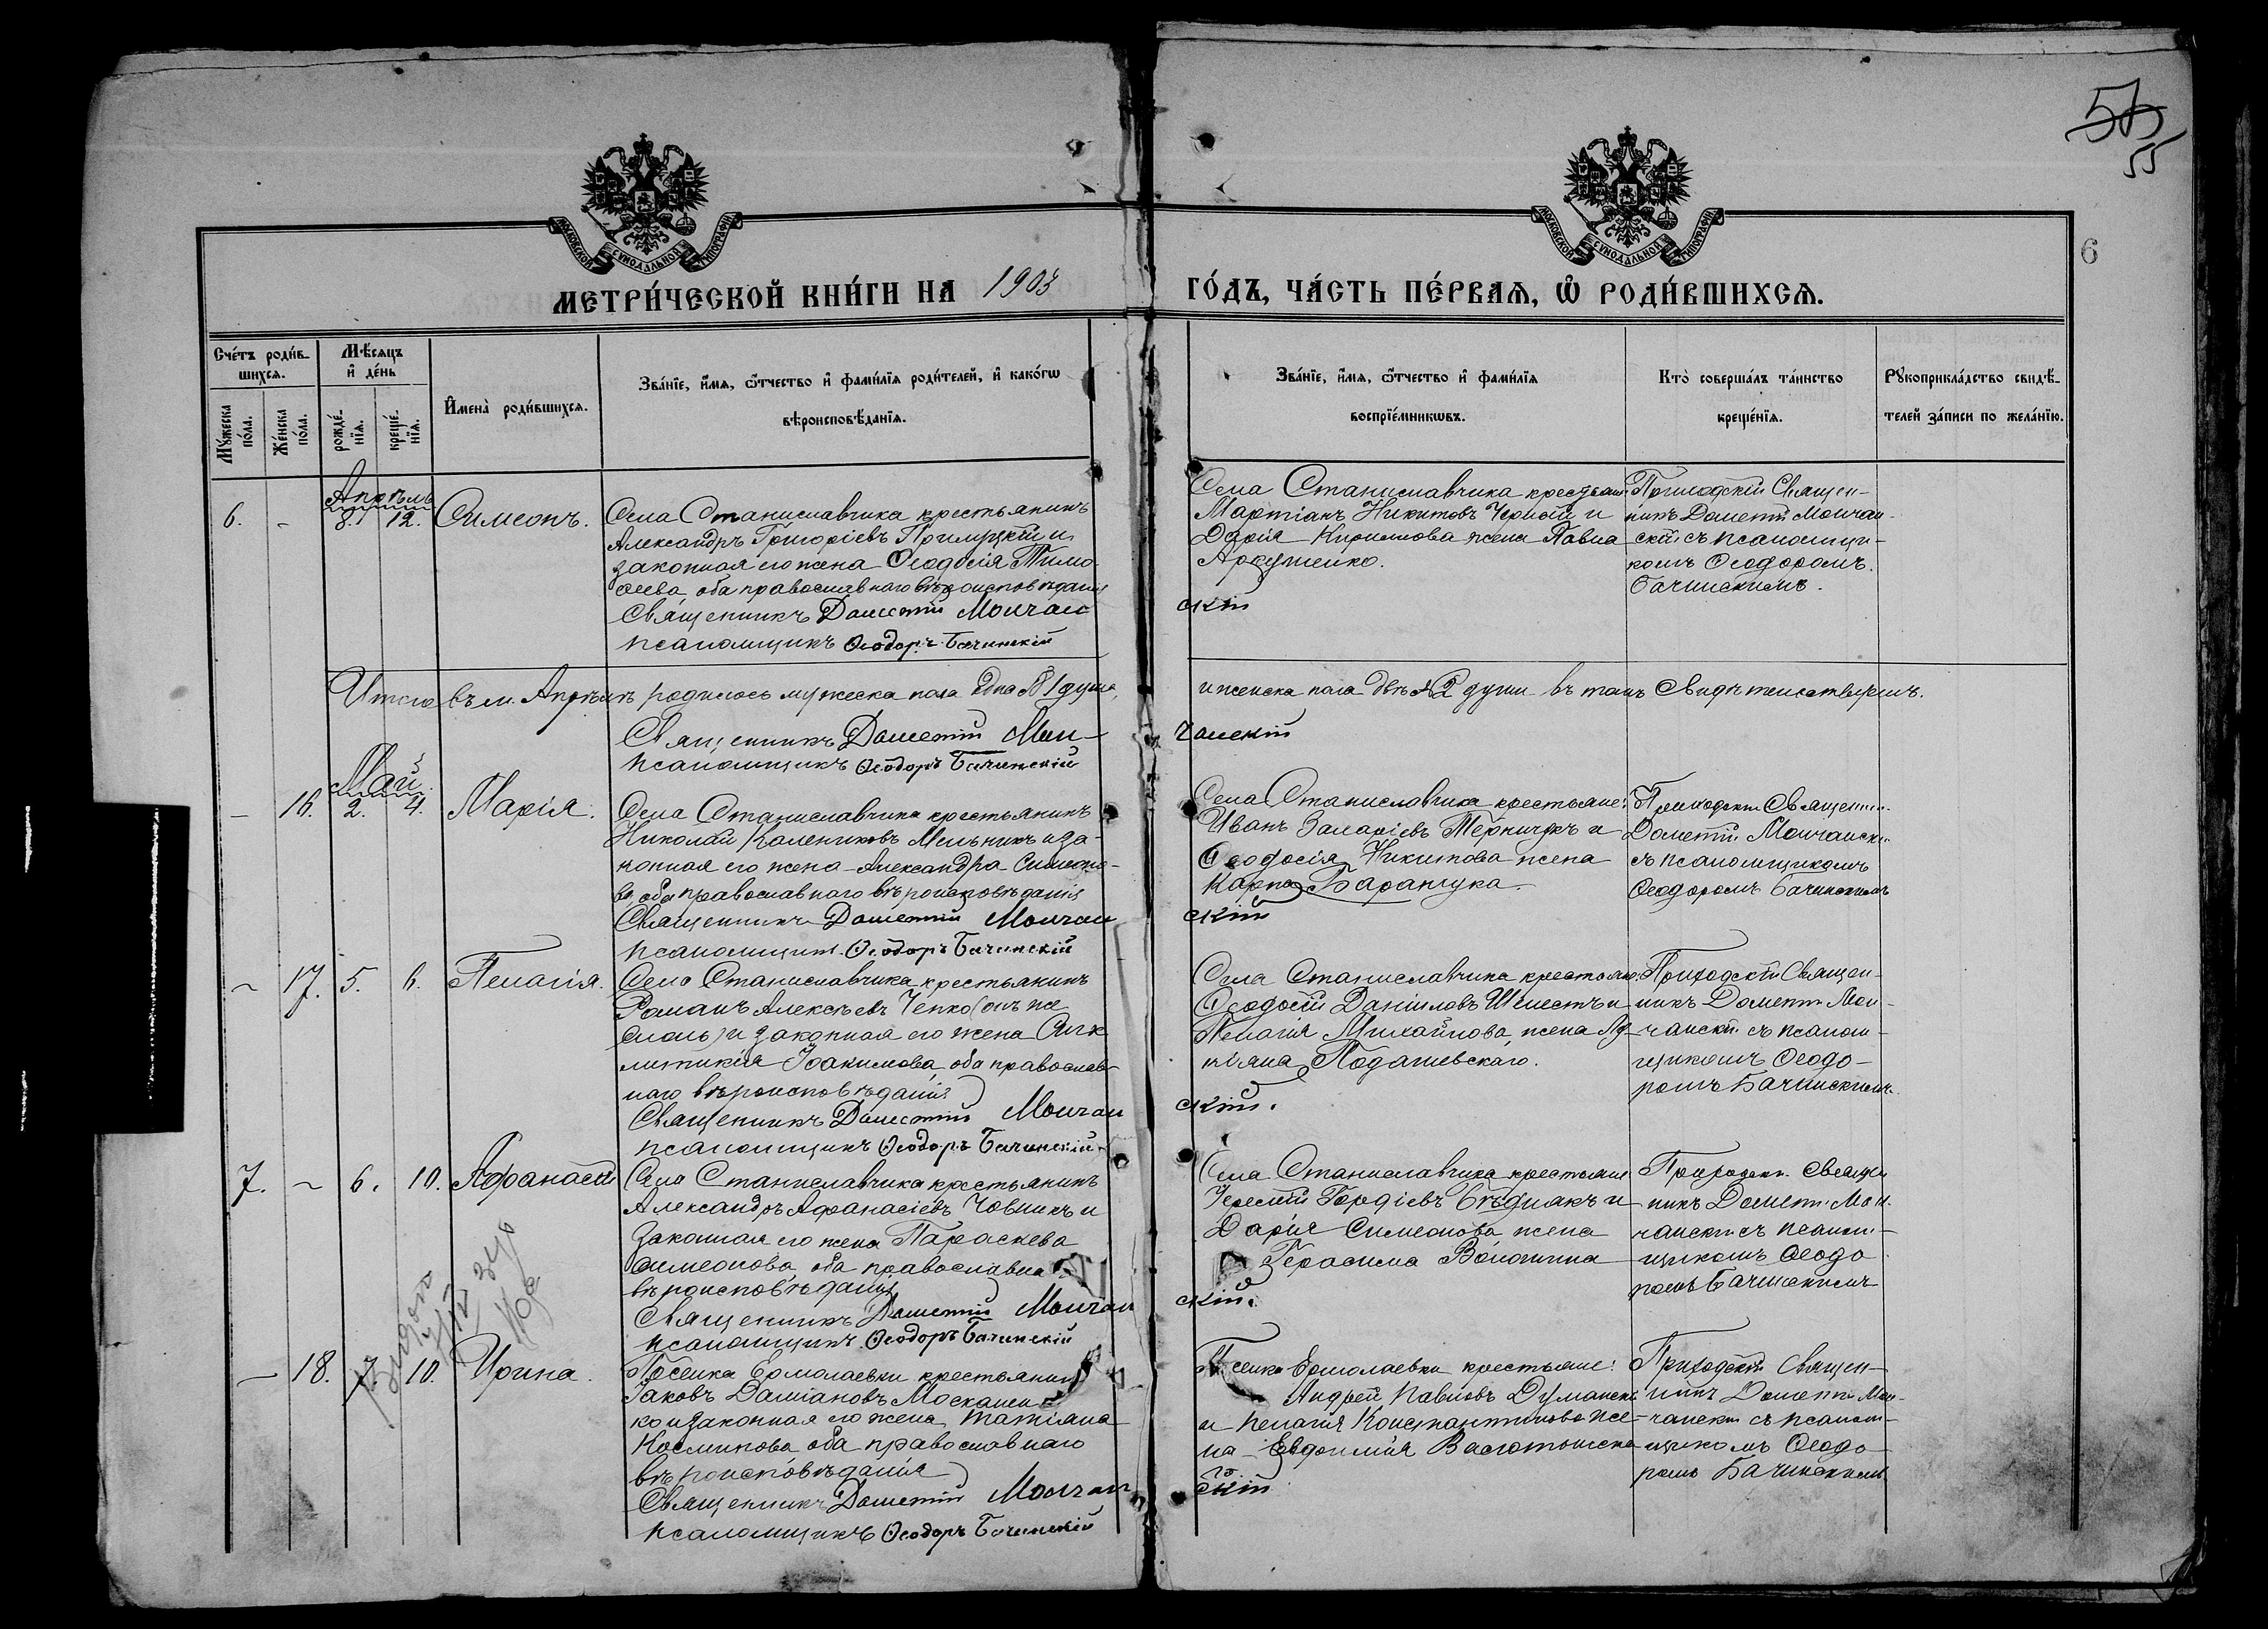 55
6
МОСКОВСКОЙ СѴНОДАЛЬНОЙ ТИПОГРАФІИ
МОСКОВСКОЙ СѴНОДАЛЬНОЙ ТИПОГРАФІИ
МЕТРИ́ЧЕСКОЙ КНИ́ГИ НА 1903
ГО́ДЪ, ЧА́СТЬ ПЕ́РВАѦ, Ѡ҆ РОДИ́ВШИХСѦ.
Сче́тъ роди́в-
шихсѧ.
Мꙋжеска по́ла.
Же́нска по́ла.
Мѣ́сѧцъ
и҆ де́нь
рожде́-
нїѧ.
креще́-
нїѧ.
И҆мена̀ роди́вшихсѧ.
Зва́нїе, и҆́мѧ, ѻ҆́тчество и҆ фами́лїѧ роди́телей, и҆ како́гѡ
вѣроисповѣ́данїѧ.
Зва́нїе, и҆́мѧ, ѻ҆́тчество и҆ фами́лїѧ
воспрїе́мникѡвъ.
Кто̀ соверша́лъ та́инство
креще́нїѧ.
Рꙋкоприкла́дство свидѣ́-
телей за́писи по жела́нїю.
Апрѣль
6. - 8. 12. Симеонъ.
Села Станиславчика крестьянинъ
Александръ Григоріевъ и
законная его жена Ѳеодосія Тимо
ѳеева, оба православнаго вѣроисповѣданія
Священникъ Дометій Молчан
псаломщикъ Ѳеодоръ Бачинскій
Села Станиславчика крестьяне:
Мартіанъ Никитовъ Черній и
Дарія Кирилова жена Павла
скій
Приходскій Священ-
никъ Дометій Молчан-
скій съ псаломщи-
комъ Ѳеодоромъ
Бачинскимъ.
Итого въ м. Апрѣлѣ родилось мужеска пола одна 1 душа,
и женска пола двѣ 2 души въ томъ свидѣтельствуемъ.
Священникъ Дометій Мол-
чанскій
псаломщикъ Ѳеодоръ Бачинскій
Май
- 16. 2. 4. Марія.
Села Станиславчика крестьянинъ
Николай Калениковъ Мельникъ и за-
конная его жена Александра Симеоно-
ва, оба православнаго вѣроисповѣданія
Священникъ Дометій Молчан
псаломщикъ Ѳеодоръ Бачинскій
Села Станиславчика крестьяне:
Иванъ Захаріевъ и
Ѳеодосія Никитова жена
Карпа Баранчука.
скій
Приходскій Священни.
Дометій Молчанскій
съ псаломщикомъ
Ѳеодоромъ Бачинскимъ
- 17. 5. 6. Пелагія.
Села Станиславчика крестьянинъ
Романъ Алексѣевъ Чепко (онъ же
) и законная его жена Синк
литикія Іоакимова, оба православ-
наго вѣроисповѣданія
Священникъ Дометій Молчан
псаломщикъ Ѳеодоръ Бачинскій
Села Станиславчика крестьяне:
Ѳеодосій Даніиловъ Шелестъ и
Пелагія Михайлова, жена Лу-
кіяна Подашевскаго.
скій.
Приходскій Священ-
никъ Дометій Мол-
чанскій съ псалом-
щикомъ Ѳеодо-
ромъ Бачинскимъ.
7. - 6. 10. Афанасій
Села Станиславчика крестьянинъ
Александръ Афанасіевъ Човникъ и
законная его жена Параскева
Симеонова, оба православна
вѣроисповѣданія
Священникъ Дометій Молчан
псаломщикъ Ѳеодоръ Бачинскій
Села Станиславчика крестьяне
Гордіевъ Бѣднякъ и
Дарія Симеонова жена
Герасима
скій.
Приходскій Священ
никъ Дометій Мол.
чанскій съ псалом-
щикомъ Ѳеодо
ромъ Бачинскимъ
- 18. 7. 10. Ирина.
Поселка Ермолаевки крестьянинъ
Іаковъ Даміановъ Москален
ко и законная его жена Татіана
Косминова оба православнаго
вѣроисповѣданія
Священникъ Дометій Молчан
псаломщикъ Ѳеодоръ Бачинскій
Поселка Ермолаевки крестьяне:
Андрей Павловъ Думанскі
и Пелагія Константинова же-
на
скій
Приходскій Священ-
никъ Дометій Мол-
чанскій съ псалом-
щикомъ Ѳеодо
ромъ Бачинскимъ